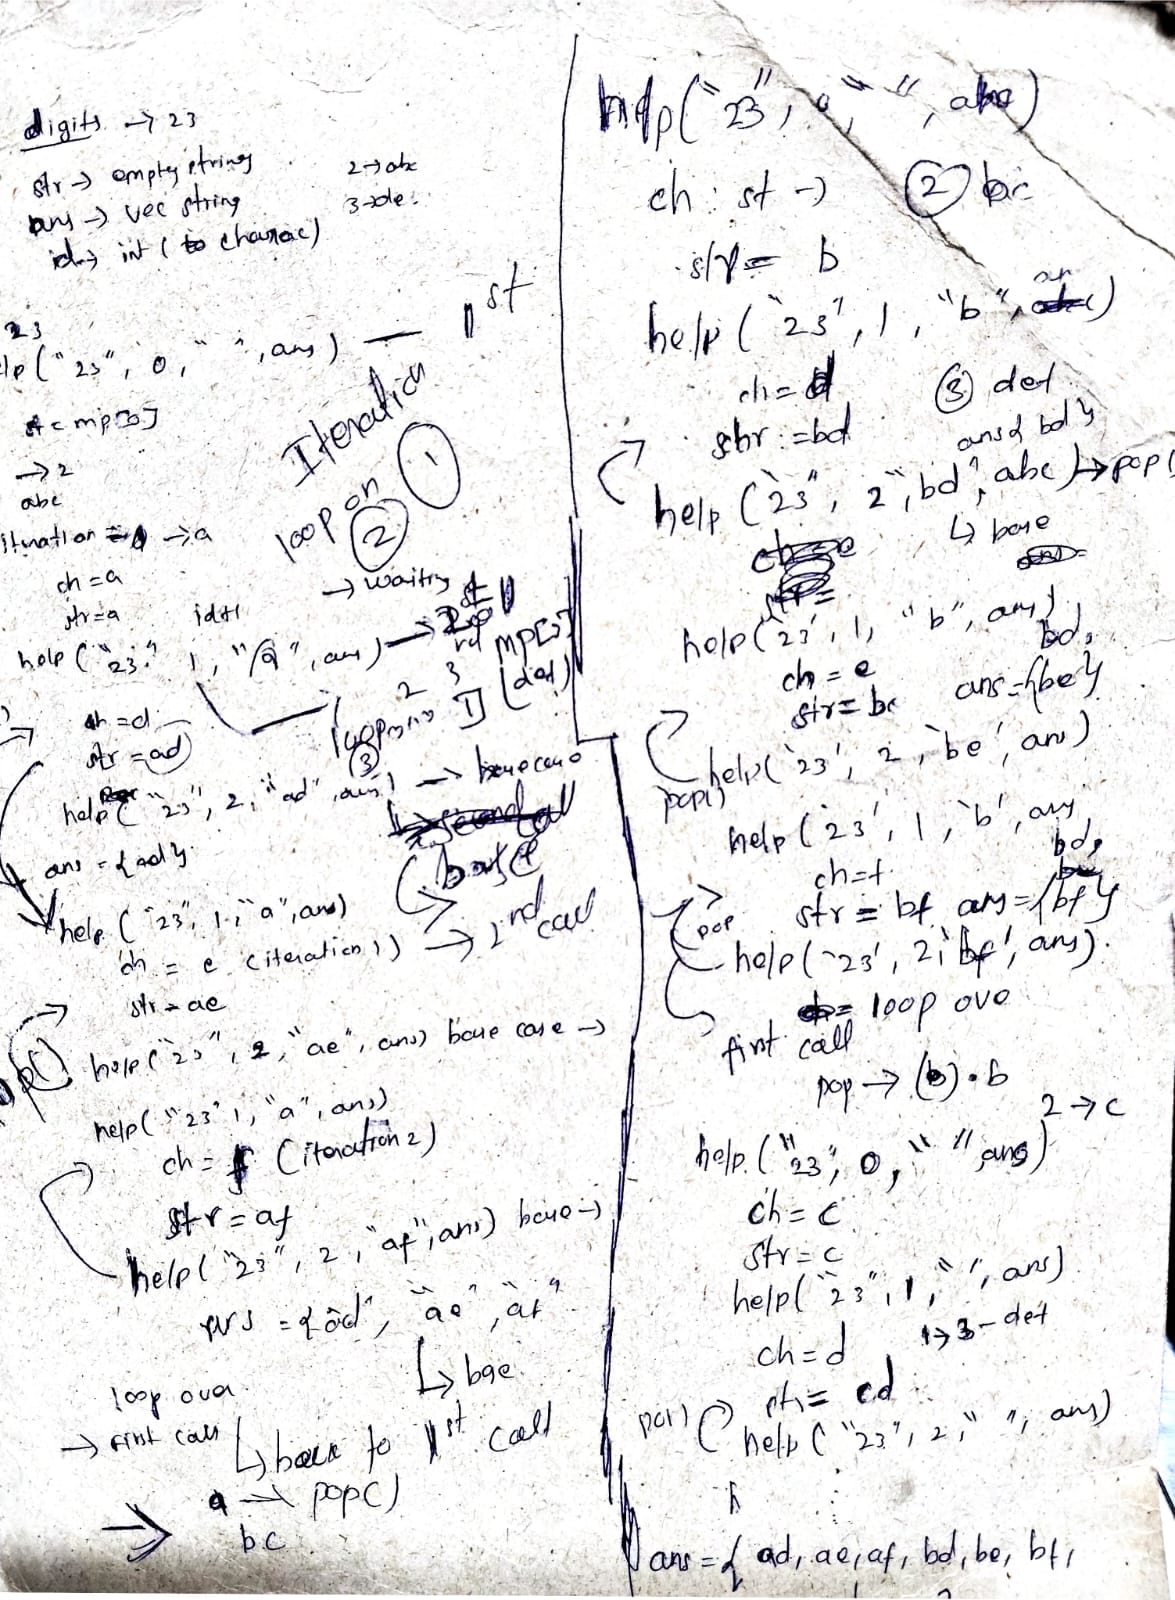 digits → 23
str → empty string
ans → vec string
id → int ( to charac)
2 → abc
3 → de
23
lp ( "23", 0, " ", ans ) — 1st
= mp[0]
→ 2
abc
Iteration 1
loop on 2
→ waiting
→ a
ch = a
str = a
id+1
help ( "23" 1, "a", ans ) → 2nd
mp[3] (def)
loop
3
ch = d
str = ad
help ( "23", 2, "ad", ans ) → base case
base
ans = {ad}
help ( "23", 1, "a", ans)
ch = e (iteration 1) → 2nd call
str = ae
help ("23", 2, "ae", ans) base case →
help( "23" 1, "a", ans)
ch = f (iteration 2)
str = af
help( "23", 2, "af", ans) base →
ans = {"ad", "ae", "af"
↳ base
loop over
→ first call
↳ back to 1st call
a → pop()
bc
help( "23", 0, " ", ans)
ch : st → 2 bc
str = b
help ( "23", 1, "b", ans)
ch = d
3 def
str := bd
ans{ bd}
help ("23", 2, "bd", abc) → pop(
↳ base
help("23", 1, "b", ans)
ch = e
bd,
str = be
ans={be}
help( '23', 2, 'be', ans)
pop()
help ( '23', 1, 'b', ans
bd,
ch=f
str = bf ans={bf}
pop
help( '23', 2, 'bf', ans).
= loop ove
first call
pop → (b) . b
2 → c
help. ( "23", 0, " " ans)
ch = c
str = c
help( "23", 1, " ", ans)
→ 3 - def
ch = d
= cd
help ( "23", 2, " ", ans)
ans = { ad, ae, af, bd, be, bf,